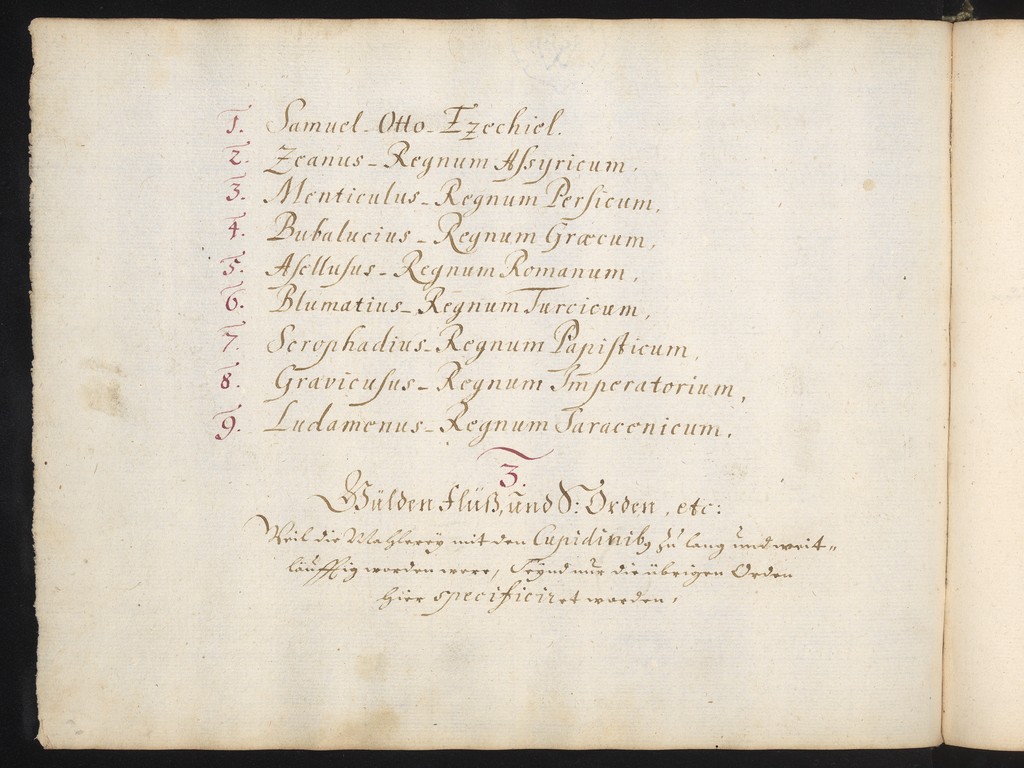 1. Samuel-Otto-Ezechiel.
2. Zeanus-Regnum Aſsyricum,
3. Menticulus-Regnum Perſicum,
4. Bubalucius-Regnum Græcum,
5. Aſellusus-Regnum Romanum,
6. Blumatius-Regnum Turcicum,
7. Scrophadius-Regnum Papiſticum,
8. Gravicuſus-Regnum Imperatorium,
9. Ludamenus-Regnum Saracenicum.
3.
Gülden flüß, und S: Orden, etc:
Weil die Mahlerey mit den Cupidinibꝰ zu lang und weit-
läuffig worden were, Seynd nur die übrigen Orden
hier specificiret worden,